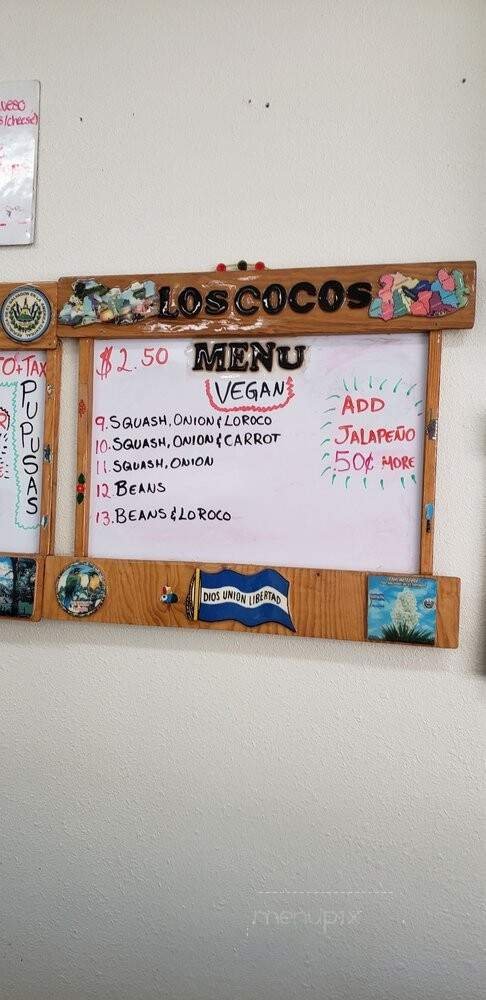 LOS COCOS
MENU
$2.50
VEGAN
9. SQUASH, ONION & LOROCO
10. SQUASH, ONION & CARROT
11. SQUASH, ONION
12. BEANS
13. BEANS & LOROCO
ADD
JALAPEÑO
50¢ MORE
+TAX
PUPUSAS
DIOS UNION LIBERTAD
menupix